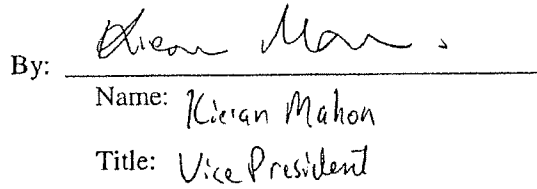 By: Kieran Mahon
Name: Kieran Mahon
Title: Vice President